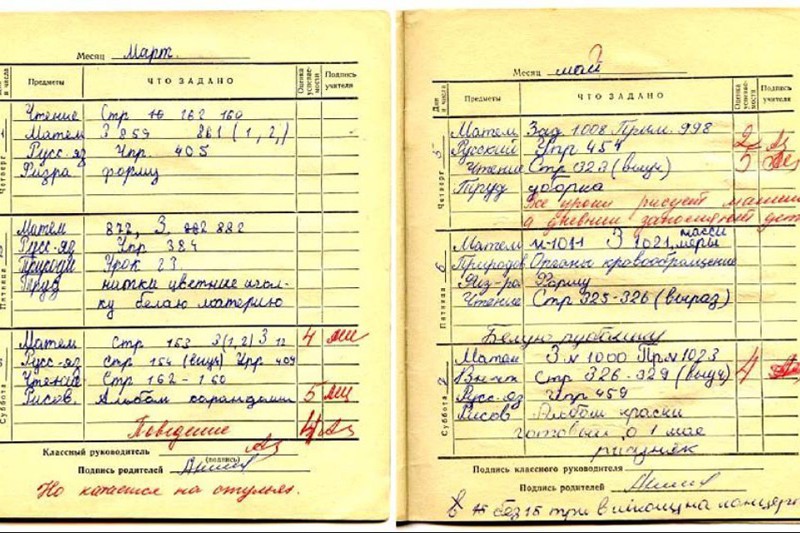 Месяц Март.
Дни и числа Предметы ЧТО ЗАДАНО Оценка успеваемости Подпись учителя
Четверг Чтение Стр 162 160
Матем З 859 861 (1, 2,)
Русс-яз Упр. 405
Физра форму
Пятница Матем 872, З. 882
Русс-яз Упр 384
Природ Урок 23
Труд нитки цветные игол-
ку белаю материю
Суббота Матем Стр 153 3(1,2) З 12 4
Русс-яз Стр 154 (выуч) Упр 409
Чтение Стр 162-160
Рисов. Альбом карандаши 5
Поведение 4
Классный руководитель
(подпись)
Подпись родителей
Но катается на стульях.
Месяц май
Дни и числа Предметы ЧТО ЗАДАНО Оценка успеваемости Подпись учителя
Четверг 5 Матем Зад 1008 Прим. 998 2
Русский Упр 454
Чтение Стр 323 (выуч)
Труд уборка
Все уроки рисует
а дневник заполняет
Пятница 6 Матем N-1011 З 1021, массы меры
Природов Органы кровообращение
Физ-ра Форму
Чтение Стр 325-326 (выраз)
Белую рубашку
Суббота Матем З N 1000 Пр N 1023
Стр 326-329 (выуч) 4
Русс-яз Упр 459
Рисов Альбом краски
готовый о 1 мае
рисунок
Подпись классного руководителя
Подпись родителей
без 15 три в школу на